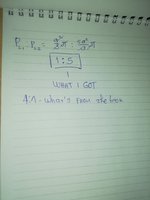 P₁ : P₂₂ = a²/2 π : 5a²/2 π
1 : 5
WHAT I GOT
4:1 - what's from the book